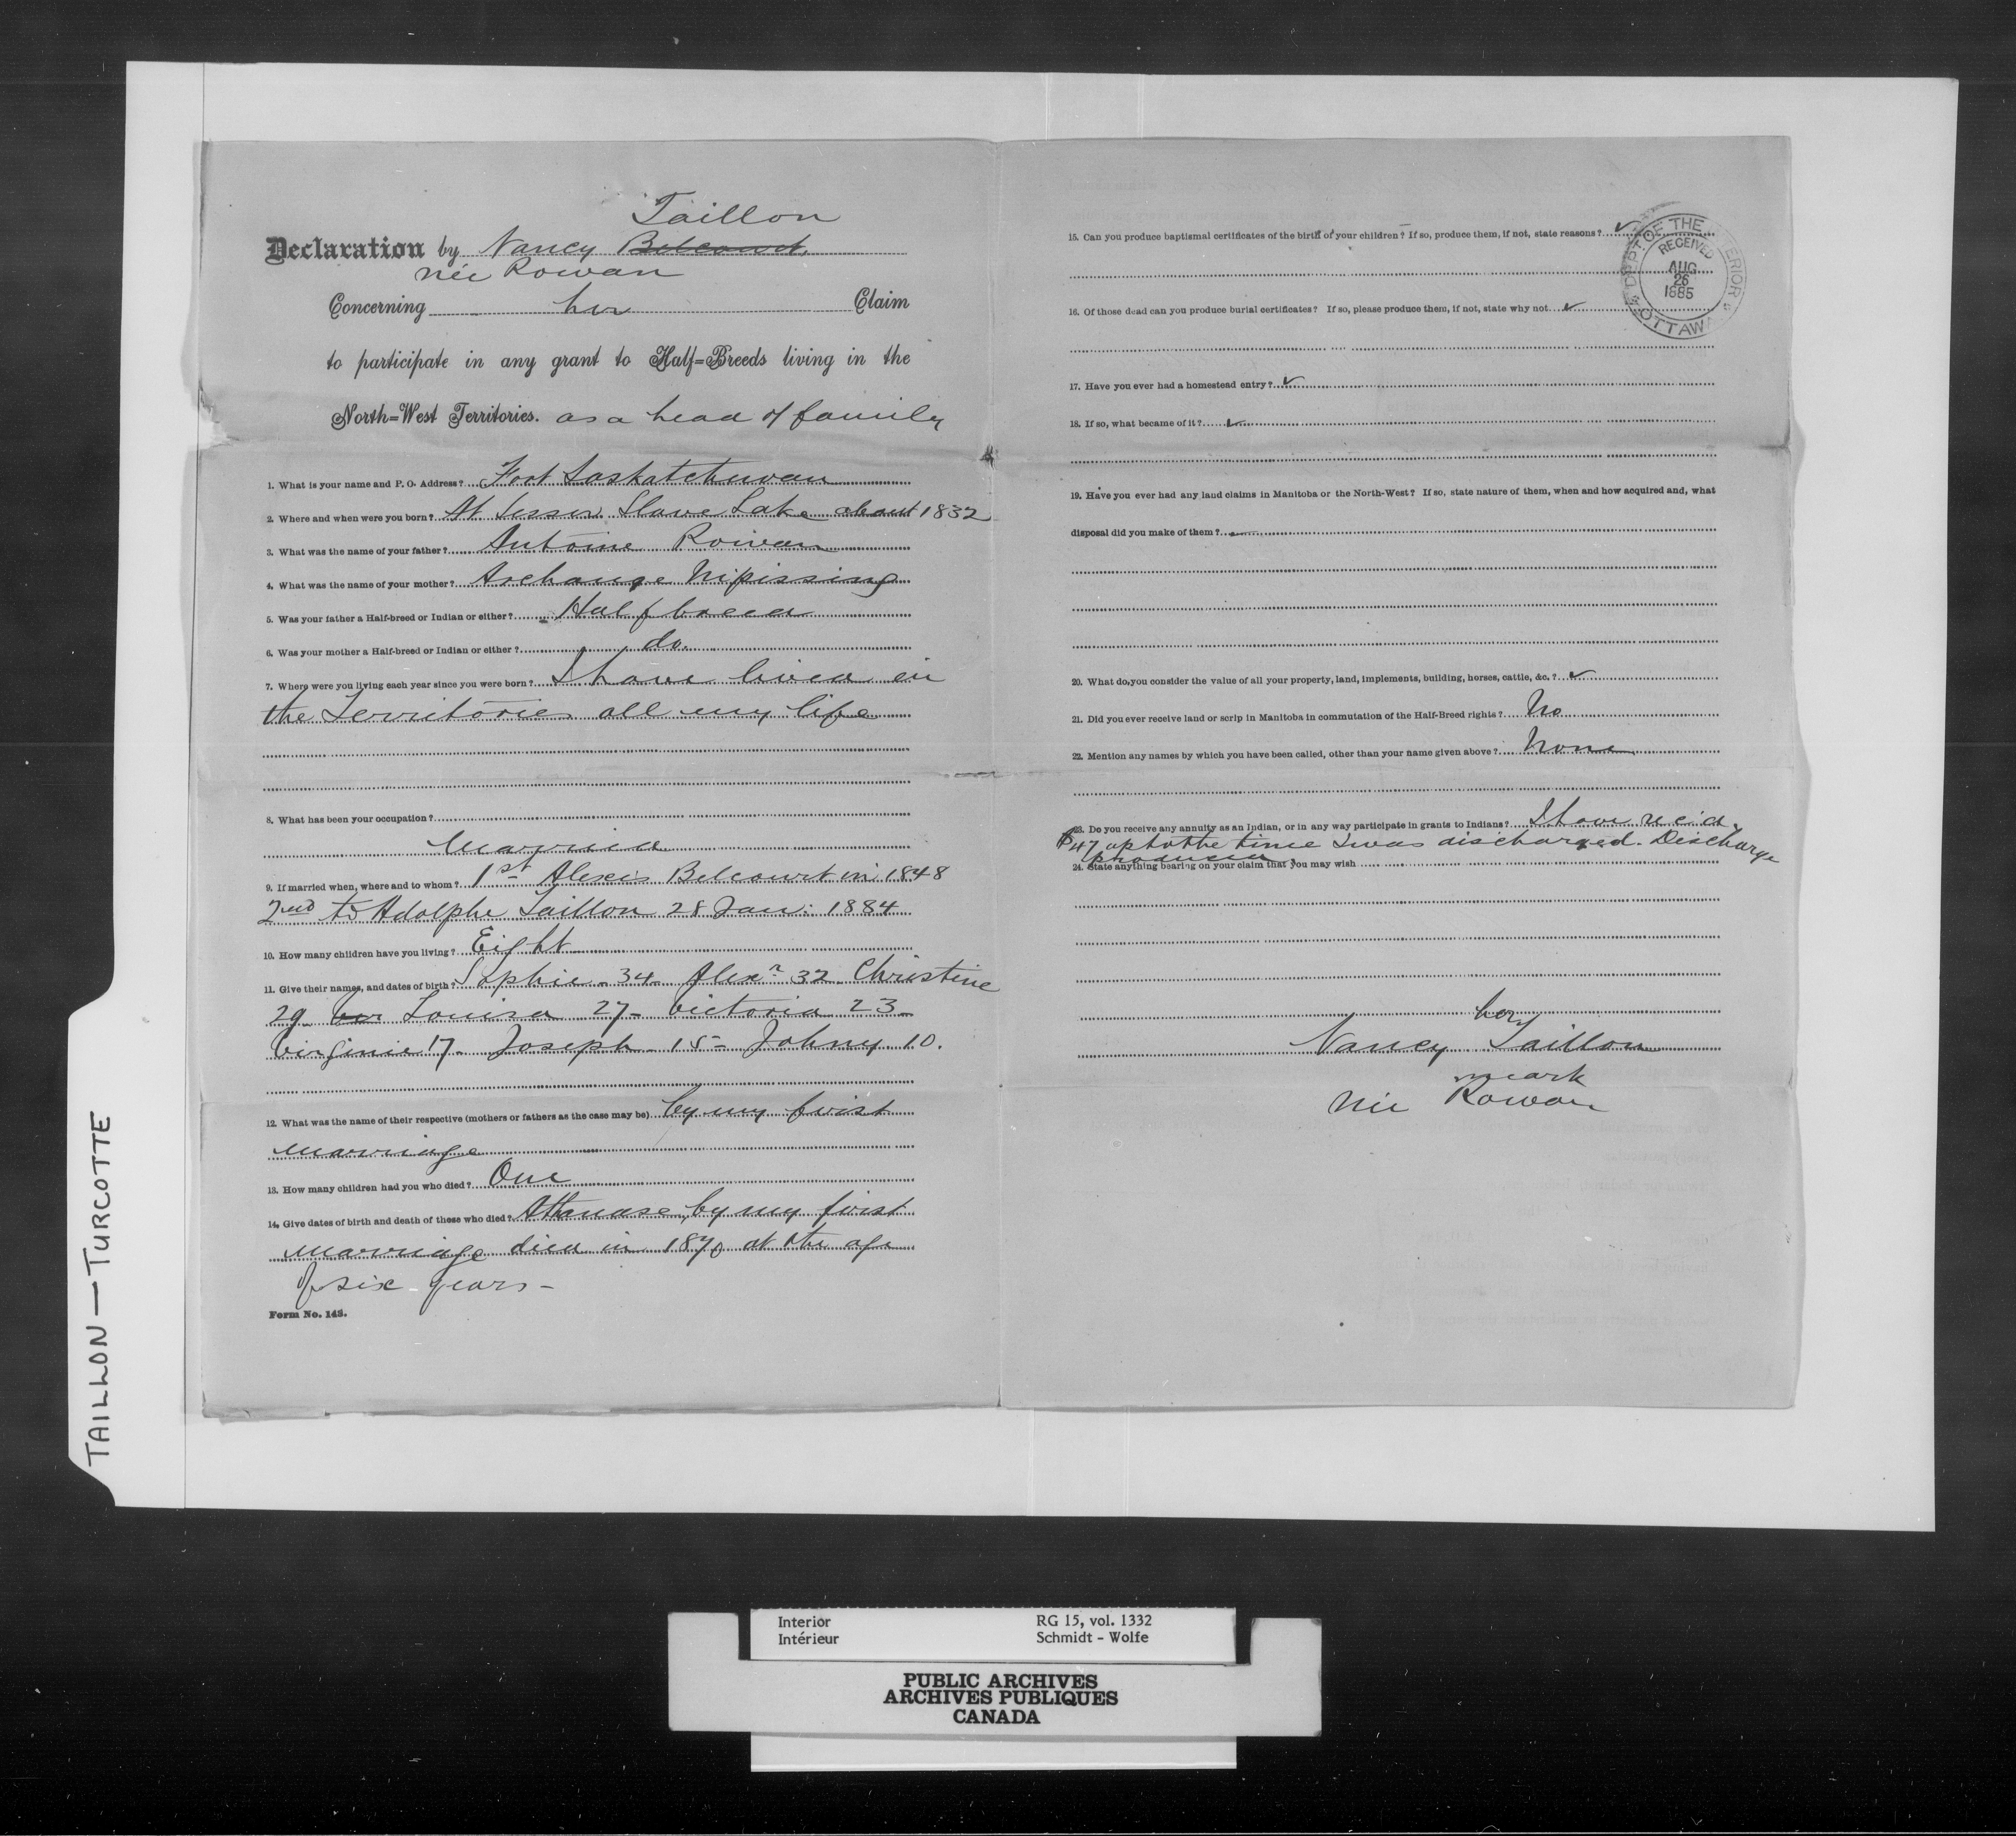 Taillon
Declaration by Nancy Belcourt,
née Rowan
Concerning her Claim
to participate in any grant to Half=Breeds living in the
North=West Territories. as a head of family
1. What is your name and P. O. Address? Fort Saskatchewan
2. Where and when were you born? At Lesser Slave Lake about 1832
3. What was the name of your father? Antoine Rowan
4. What was the name of your mother? Archange Nipissing
5. Was your father a Half-breed or Indian or either? Half breed
6. Was your mother a Half-breed or Indian or either? do.
7. Where were you living each year since you were born? I have lived in
the Territories all my life
8. What has been your occupation?
Married
9. If married when, where and to whom? 1st Alexis Belcourt in 1848
2nd to Adolphe Taillon 28 Jan: 1884
10. How many children have you living? Eight
11. Give their names, and dates of birth? Sophie 34 Alexr 32 Christine
29 Louisa 27 - Victoria 23 -
Virginie 17 - Joseph - 15 - Johny 10.
12. What was the name of their respective (mothers or fathers as the case may be) by my first
marriage
13. How many children had you who died? One
14. Give dates of birth and death of these who died? Athanase by my first
marriage died in 1870 at the age
of six years -
Form No. 143.
15. Can you produce baptismal certificates of the birth of your children? If so, produce them, if not, state reasons? ✓
DEPT OF THE INTERIOR
RECEIVED
AUG
26
1885
OTTAWA
16. Of those dead can you produce burial certificates? If so, please produce them, if not, state why not ✓
17. Have you ever had a homestead entry? ✓
18. If so, what became of it? ✓
19. Have you ever had any land claims in Manitoba or the North-West? If so, state nature of them, when and how acquired and, what
disposal did you make of them? ✓
20. What do you consider the value of all your property, land, implements, building, horses, cattle, &c. ? ✓
21. Did you ever receive land or scrip in Manitoba in commutation of the Half-Breed rights? No
22. Mention any names by which you have been called, other than your name given above? None
23. Do you receive any annuity as an Indian, or in any way participate in grants to Indians? I have rec'd
$47 up to the time I was discharged. Discharge
produced
24. State anything bearing on your claim that you may wish
her
Nancy Taillon
mark
née Rowan
TAILLON — TURCOTTE
Interior RG 15, vol. 1332
Intérieur Schmidt - Wolfe
PUBLIC ARCHIVES
ARCHIVES PUBLIQUES
CANADA